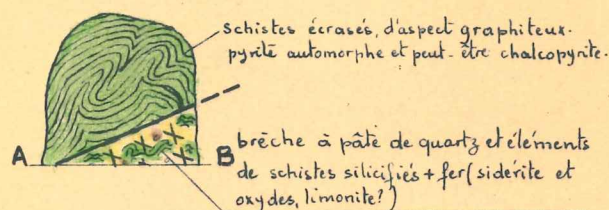 schistes écrasés, d'aspect graphiteux.
pyrite automorphe et peut-être chalcopyrite.
A B
brèche à pâte de quartz et éléments
de schistes silicifiés + fer (sidérite et
oxydes, limonite?)